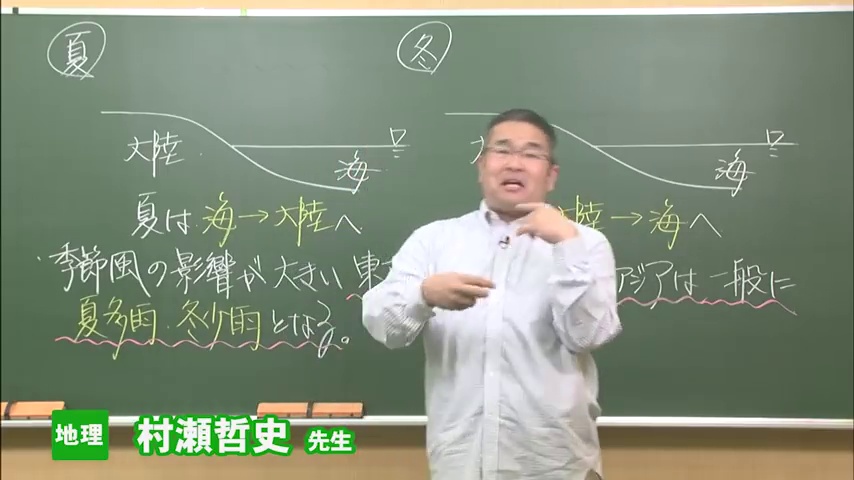 夏
冬
大陸
海
海
夏は 海→大陸へ
大陸→海へ
季節風の影響が大きい 東
アジアは一般に
夏多雨・冬少雨となる。
地理 村瀬哲史 先生